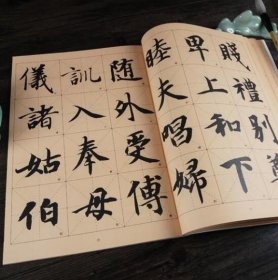 賤禮別尊
卑上和下
睦夫唱婦
随外受傅
訓入奉母
儀諸姑伯